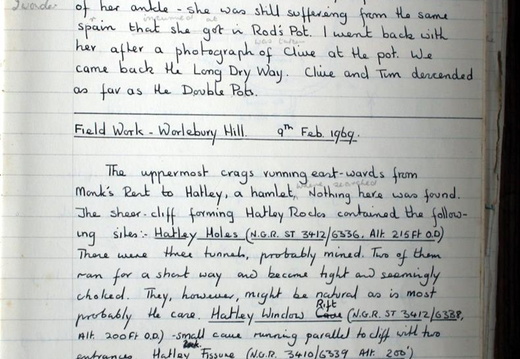 of her ankle - she was still suffering from the same
spain that she got in Rod's Pot. I went back with
her after a photograph of Clive at the pot. We
was taken
came back the Long Dry Way. Clive and Tim descended
as far as the Double Pots.
Field Work - Worlebury Hill. 9th Feb. 1969.
The uppermost crags running east-wards from
were searched
Monk's Rent to Hatley, a hamlet, Nothing here was found.
The sheer cliff forming Hatley Rocks contained the follow-
ing sites:- Hatley Holes (N.G.R. ST 3412/6336. Alt. 215 Ft O.D)
There were three tunnels, probably mined. Two of them
ran for a short way and became tight and seemingly
choked. They, however, might be natural as is most
probably the case. Hatley Window Rift Cave (N.G.R. ST 3412/6338,
Alt. 200 FT O.D) - small cave running parallel to cliff with two
entrances Hatley Fissure (N.G.R. 3410/6339 Alt. 200')